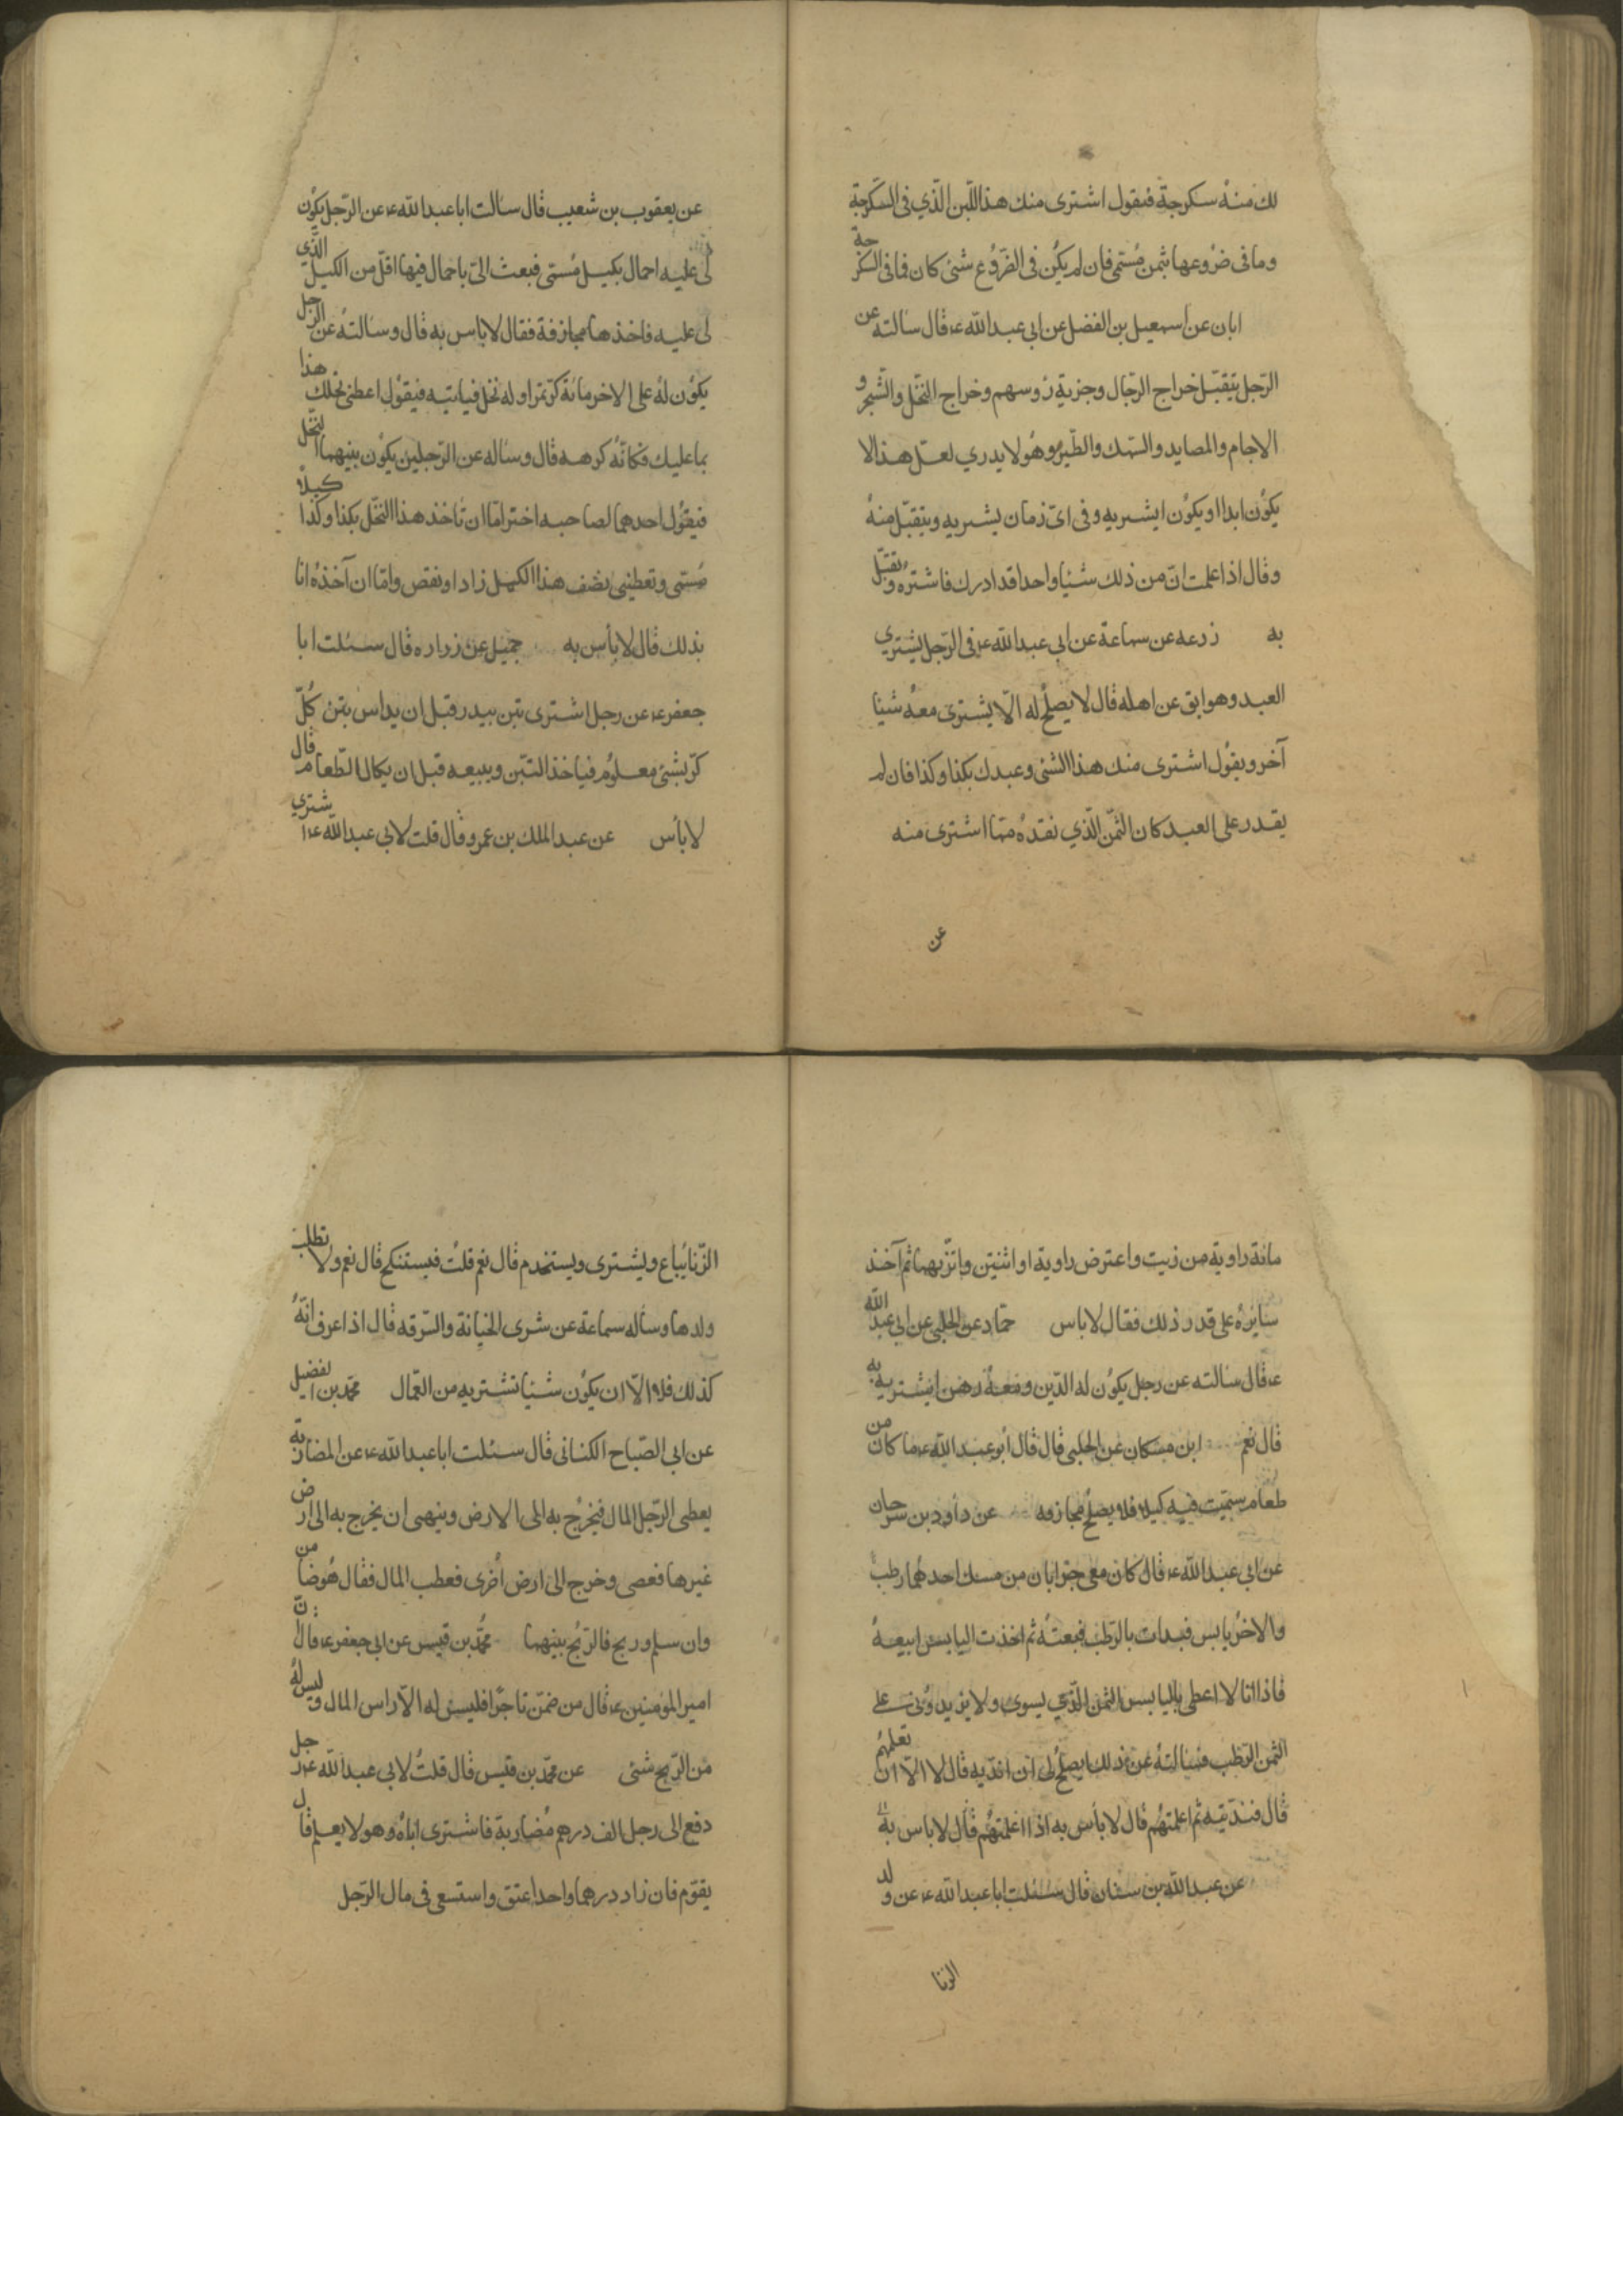 لك منه سكرجة فيقول اشترى منك هذا اللبن الذي فى السكرجة
وما فى ضروعها بثمن مسمى فان لم يكن فى الضروع شئ كان فيما فى السكرجة
ابان عن اسمعيل بن الفضل عن ابى عبد الله ع قال سالته عن
الرجل يتقبل خراج الرجال وجزية رؤسهم وخراج النخل والشجر و
الاجام والمصايد والسمك والطير وهو لا يدري لعل هذا لا
يكون ابدا او يكون ايشتريه وفى اى زمان يشتريه ويتقبل منه
وقال اذا علمت ان من ذلك شيئا واحدا قد ادرك فاشتره وتقبل
به زرعه عن سماعة عن ابى عبد الله ع فى الرجل يشتري
العبد وهو ابق عن اهله قال لا يصلح له الا يشترى معه شيئا
آخر ويقول اشترى منك هذا الشئ وعبدك بكذا وكذا فان لم
يقدر على العبد كان الثمن الذي نقده مما اشترى منه
عن
عن يعقوب بن شعيب قال سالت ابا عبد الله ع عن الرجل يكون
لى عليه احمال بكيل مسمى فبعث الى باحمال فيها اقل من الكيل الذي
لى عليه فاخذها مجازفة فقال لا باس به قال وسالته عن الرجل
يكون له على الاخر مائة كر تمر او له نخل فياتيه فيقول اعطنى نخلك هذا
بما عليك فكانه كرهه قال وساله عن الرجلين يكون بينهما النخل
فيقول احدهما لصاحبه اختر اما ان تاخذ هذا النخل بكذا وكذا كيلا
مسمى وتعطينى نصف هذا الكيل زاد او نقص واما ان آخذه انا
بذلك قال لا بأس به جميل عن زراره قال سئلت ابا
جعفر ع عن رجل اشترى تبن بيدر قبل ان يداس بتبن كل
كر بشئ معلوم فياخذ التبن ويبيعه قبل ان يكال الطعام قال
لا بأس عن عبد الملك بن عمرو قال قلت لابى عبد الله ع اشتري
مائة راوية من زيت واعترض راوية او اثنتين واتزنهما ثم آخذ
سايره على قدر ذلك فقال لا باس حماد عن الحلبى عن ابى عبد الله
ع قال سالته عن رجل يكون له الدين ومعه رهن ايشتريه به
قال نعم ابن مسكان عن الحلبى قال قال ابو عبد الله ع ما كان من
طعام سميت فيه كيلا فلا يصلح مجازفه عن داود بن سرحان
عن ابى عبد الله ع قال كان معى جرابان من مسك احدهما رطب
والاخر يابس فبدات بالرطب فبعته ثم اخذت اليابس ابيعه
فاذا انا لا اعطى باليابس الثمن الذي يسوى ولا يزيدونى على
الثمن الرطب فسالته عن ذلك ايصلح لى ان انديه قال لا الا ان تعلمهم
قال فنديته ثم اعلمتهم قال لا بأس به اذا اعلمتهم قال لا باس به
عن عبد الله بن سنان قال سئلت ابا عبد الله ع عن ولد
الزنا
الزنا يباع ويشترى ويستخدم قال نعم قلت فيستنكح قال نعم ولا تطلب
ولدها وساله سماعة عن شرى الخيانة والسرقه قال اذا عرف انه
كذلك فلا الا ان يكون شيئا تشتريه من العمال محمد بن الفضيل
عن ابى الصباح الكنانى قال سئلت ابا عبد الله ع عن المضاربة
يعطى الرجل المال فيخرج به الى الارض وينهى ان يخرج به الى ارض
غيرها فعصى وخرج الى ارض اخرى فعطب المال فقال هو ضامن
وان سلم وربح فالربح بينهما محمد بن قيس عن ابى جعفر ع قال ان
امير المؤمنين ع قال من ضمن تاجرا فليس له الا راس المال وليس له
من الربح شئ عن محمد بن قيس قال قلت لابى عبد الله ع رجل
دفع الى رجل الف درهم مضاربة فاشترى اباه وهو لا يعلم قال
يقوم فان زاد درهما واحدا عتق واستسعى فى مال الرجل